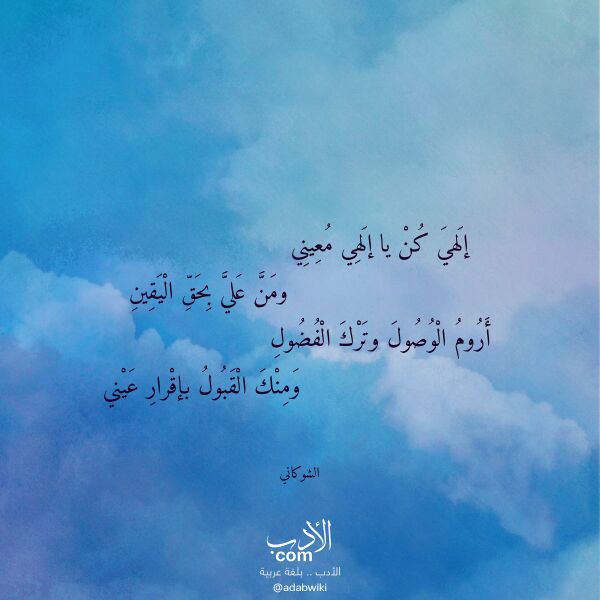 إلَهيَ كُنْ يا إلَهِي مُعِينِي
ومَنَّ عَليَّ بِحَقِّ الْيَقِينِ
أَرُومُ الْوُصُولَ وتَرْكَ الْفُضُولِ
وَمِنْكَ الْقَبُولُ بإقْرارِ عَيْني
الشوكاني
الأدب
com
الأدب .. بلغة عربية
@adabwiki